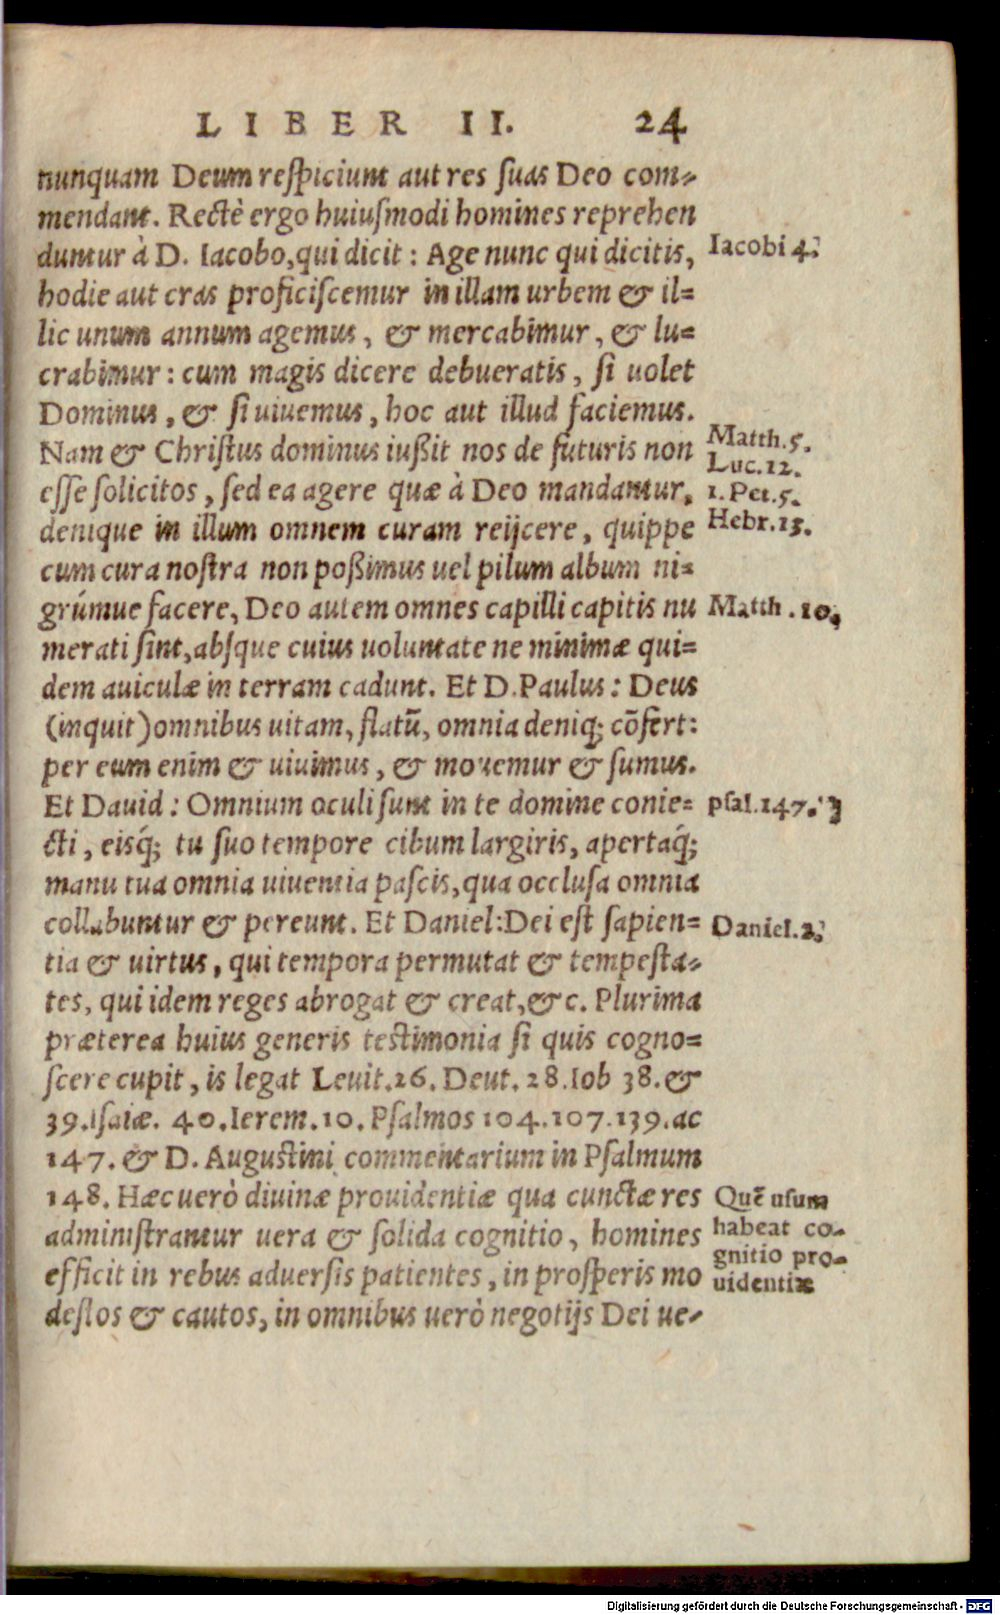 LIBER II. 24
nunquam Deum respiciunt aut res suas Deo com-
mendant. Rectè ergo huiusmodi homines reprehen
duntur à D. Iacobo, qui dicit : Age nunc qui dicitis,
Iacobi 4.
hodie aut cras proficiscemur in illam urbem & il-
lic unum annum agemus, & mercabimur, & lu-
crabimur : cum magis dicere debueratis, si uolet
Dominus, & si uiuemus, hoc aut illud faciemus.
Nam & Christus dominus iußit nos de futuris non
Matth. 5.
Luc. 12.
esse solicitos, sed ea agere quæ à Deo mandantur,
1. Pet. 5.
denique in illum omnem curam reijcere, quippe
Hebr. 13.
cum cura nostra non poßimus uel pilum album ni-
grúmue facere, Deo autem omnes capilli capitis nu
Matth. 10.
merati sint, absque cuius uoluntate ne minimæ qui-
dem auiculæ in terram cadunt. Et D. Paulus : Deus
(inquit) omnibus uitam, flatũ, omnia deniq; cõfert :
per eum enim & uiuimus, & mouemur & sumus.
Et Dauid : Omnium oculi sunt in te domine conie-
psal. 147.
cti, eisq́; tu suo tempore cibum largiris, apertaq́;
manu tua omnia uiuentia pascis, qua occlusa omnia
collabuntur & pereunt. Et Daniel : Dei est sapien-
Daniel. 2.
tia & uirtus, qui tempora permutat & tempesta-
tes, qui idem reges abrogat & creat, &c. Plurima
præterea huius generis testimonia si quis cogno-
scere cupit, is legat Leuit. 26. Deut. 28. Iob 38. &
39. Isaiæ. 40. Ierem. 10. Psalmos 104. 107. 139. ac
147. & D. Augustini commentarium in Psalmum
148. Hæc uerò diuinæ prouidentiæ qua cunctæ res
Quẽ usum
administrantur uera & solida cognitio, homines
habeat co-
gnitio pro-
efficit in rebus aduersis patientes, in prosperis mo
uidentiæ
destos & cautos, in omnibus uerò negotijs Dei ue-
Digitalisierung gefördert durch die Deutsche Forschungsgemeinschaft - DFG